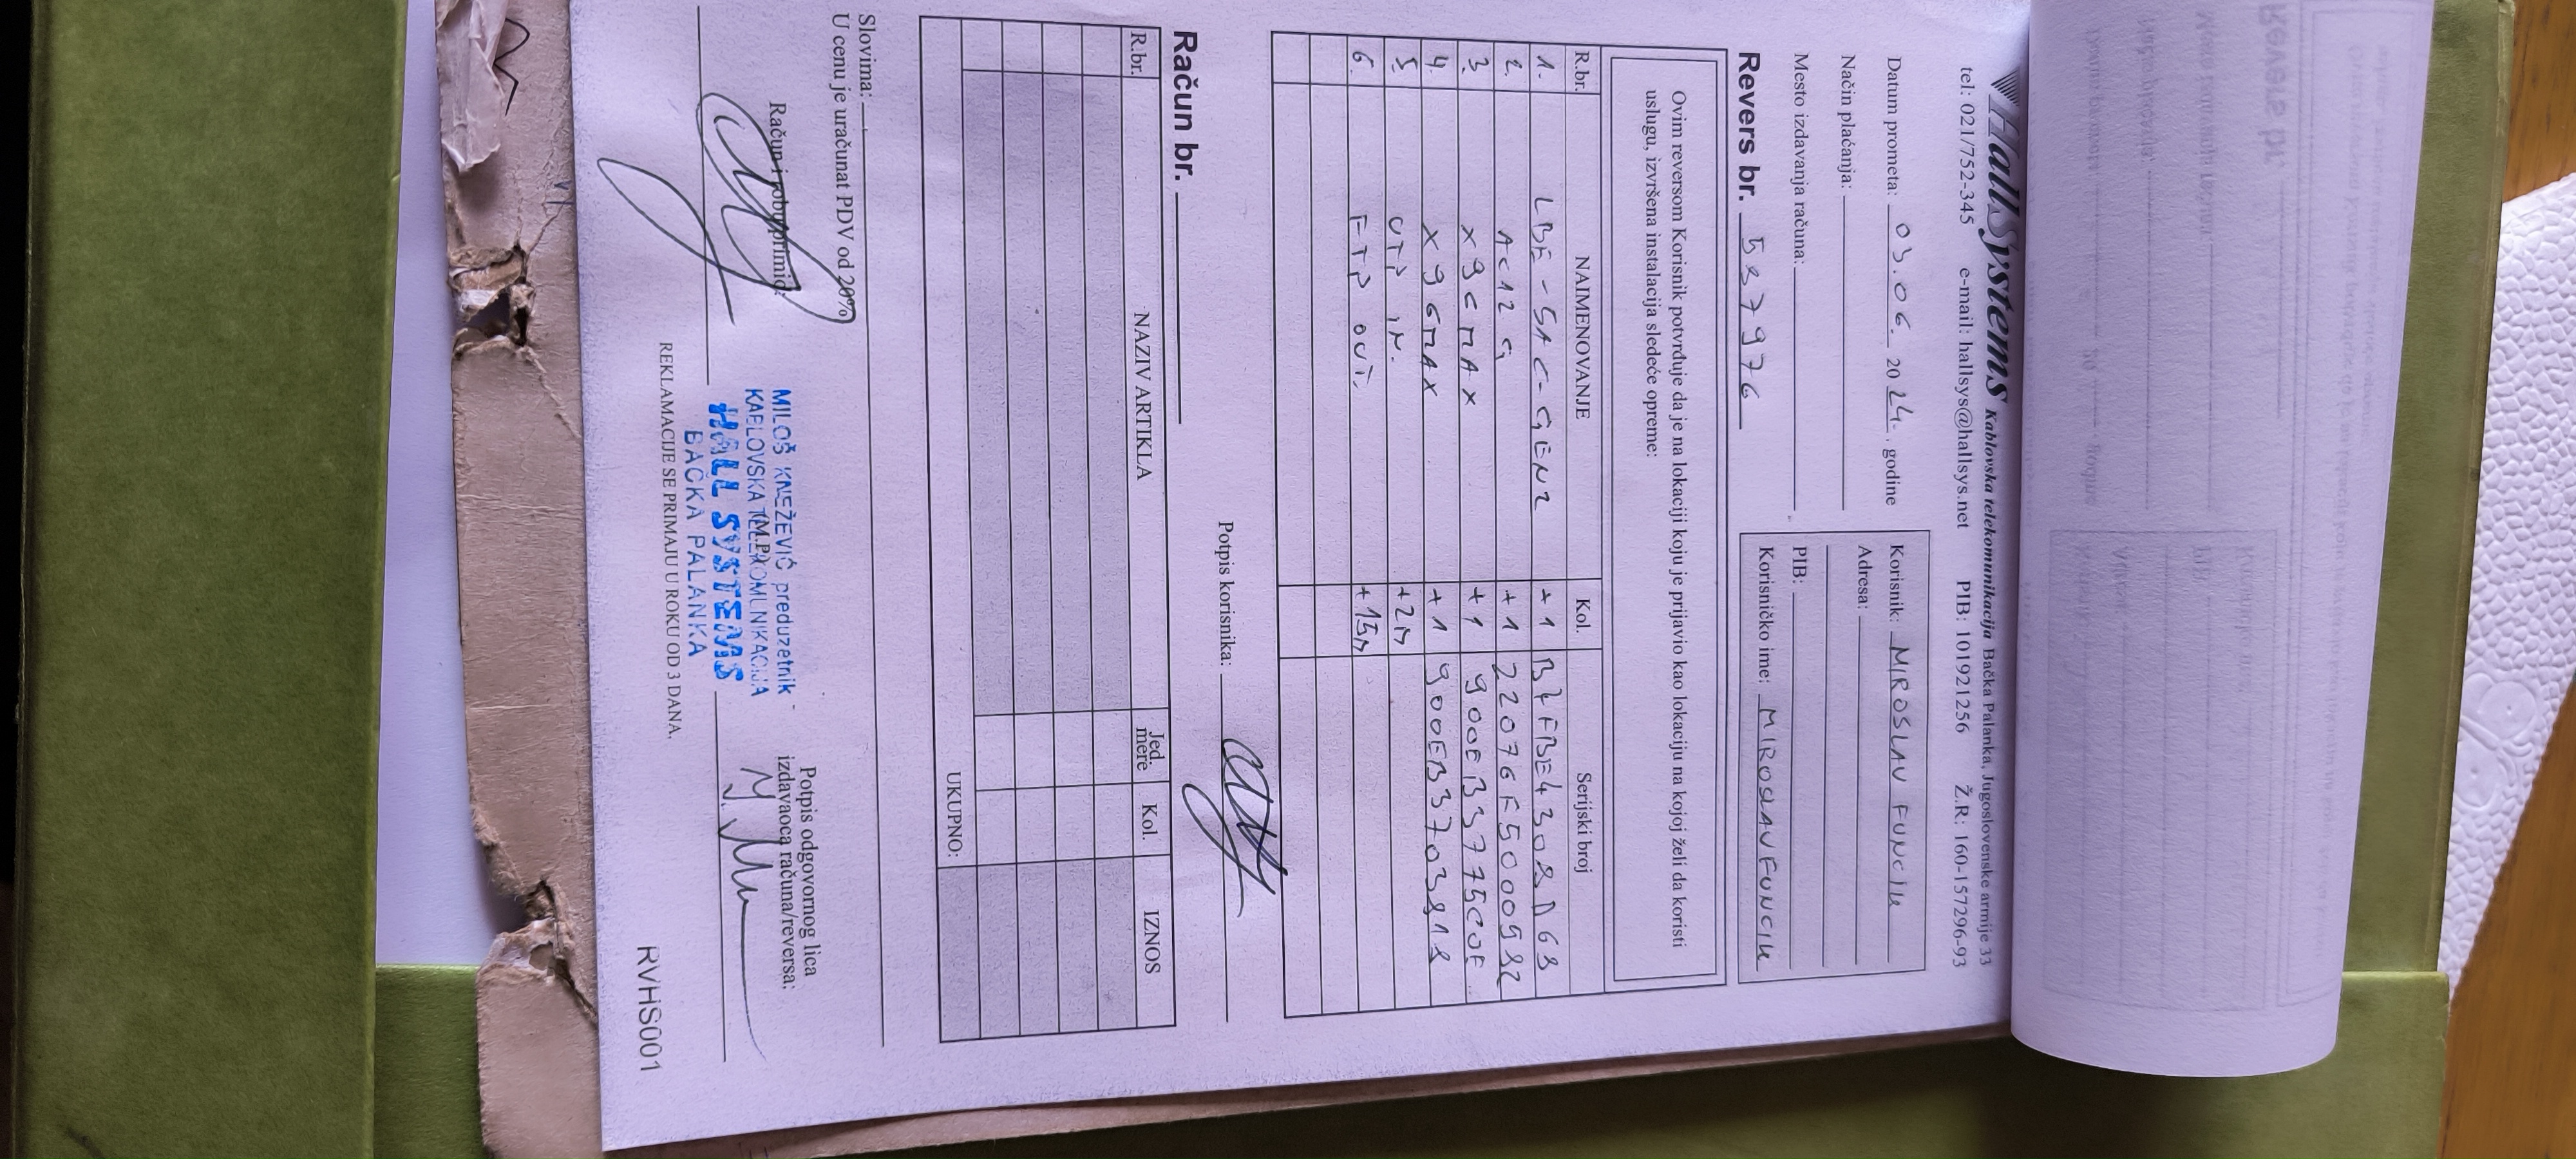 HallSystems Kablovska telekomunikacija Bačka Palanka, Jugoslovenske armije 33
tel: 021/752-345 e-mail: hallsys@hallsys.net PIB: 101921256 Ž.R: 160-157296-93
Datum prometa: 03.06. 2024. godine
Način plaćanja:
Mesto izdavanja računa:
Korisnik: MIROSLAV FUNCIK
Adresa:
PIB:
Korisničko ime: MIROSLAVFUNCIK
Revers br. 587976
Ovim reversom Korisnik potvrđuje da je na lokaciji koju je prijavio kao lokaciju na kojoj želi da koristi
uslugu, izvršena instalacija sledeće opreme:
R.br. NAIMENOVANJE Kol. Serijski broj
1. LBE-5AC-GEN2 +1
2. AC12 G +1 22076F5000982
3. X96MAX +1 900EB3775C0F
4. X96MAX +1 900EB3703818
5. UTP IN. +2M
6. FTP OUT. +15M
Potpis korisnika:
Račun br.
R.br. NAZIV ARTIKLA Jed. mere Kol. IZNOS
UKUPNO:
Slovima:
U cenu je uračunat PDV od 20%
Račun i robu primio:
MILOŠ KNEŽEVIĆ preduzetnik
KABLOVSKA TELEKOMUNIKACIJA
(M.P.)
HALL SYSTEMS
BAČKA PALANKA
Potpis odgovornog lica
izdavaoca računa/reversa:
REKLAMACIJE SE PRIMAJU U ROKU OD 3 DANA.
RVHS001